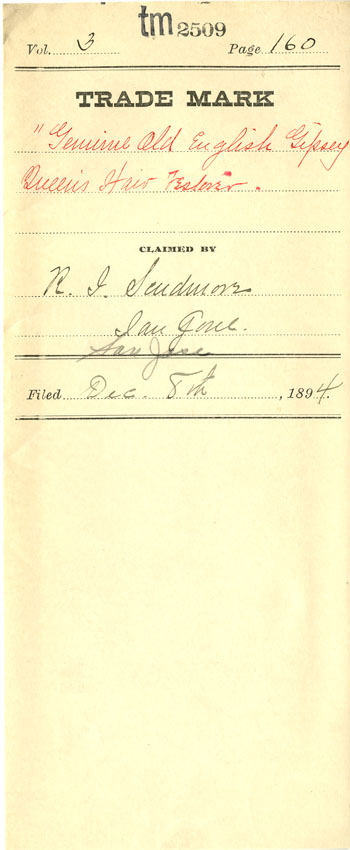 tm 2509
Vol. 3 Page 160
TRADE MARK
"Genuine Old English Gipsey
Queen's Hair Restorer.
CLAIMED BY
R. J.
San Jose.
San Jose
Filed Dec. 8th, 1894.